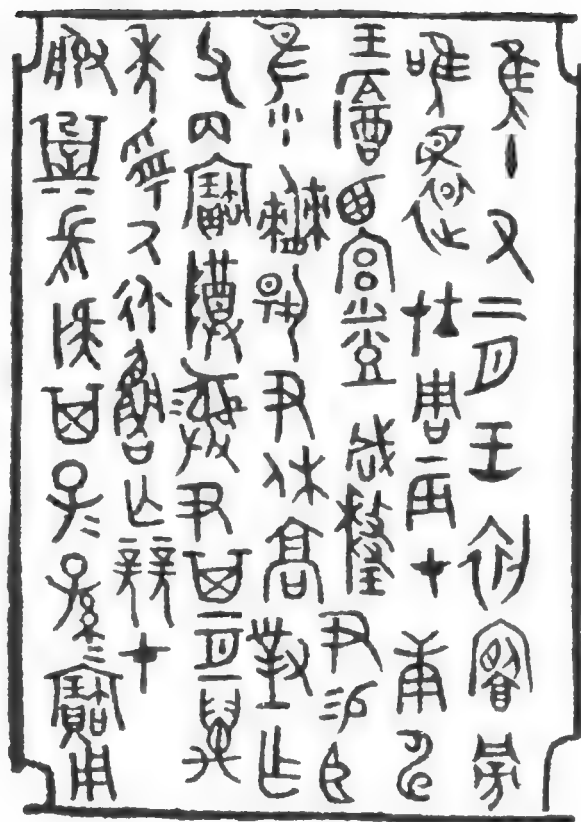 隹十又二月王初館旁
唯還才周辰才庚申
王酓西宮烝咸釐尹易臣
隹小僰揚尹休高對乍
父丙寶尊彝尹其亙萬
年受厥永魯亡競才
服㠱長疑其子子孫孫寶用